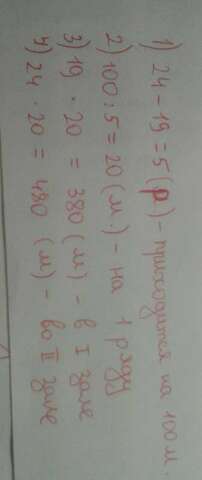 1) 24 - 19 = 5 (р) - приходится на 100 м.
2) 100 : 5 = 20 (м.) - на 1 ряду
3) 19 · 20 = 380 (м) - в I зале
4) 24 · 20 = 480 (м) - во II зале